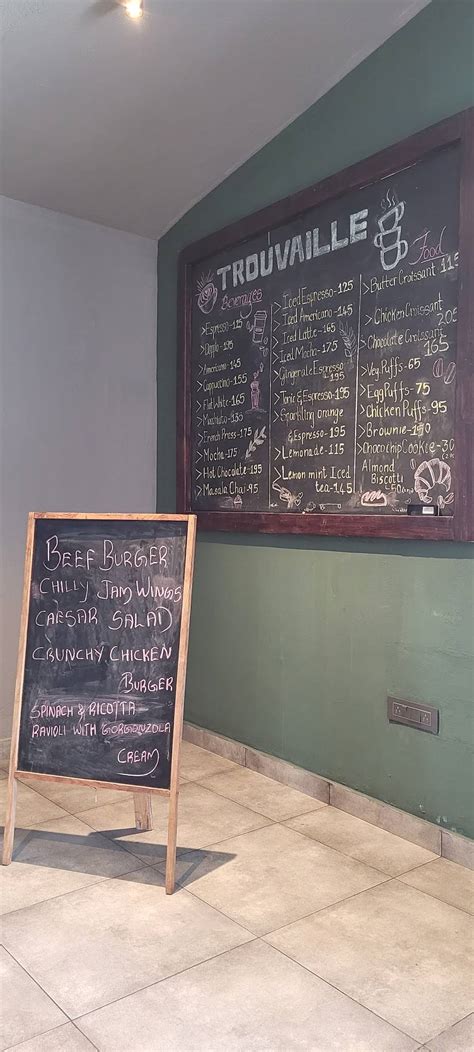 TROUVAILLE
Beverages
>Espresso-125
>Dopplo-195
>Americano-145
>Cappuccino-155
>Flat White-165
>French Press-175
>Mocha-175
>Hot Chocolate-195
>Masala Chai-95
>Iced Espresso-125
>Iced Americano-145
>Iced Latte-165
>Iced Mocha-175
>Gingerale Espresso
-195
>Tonic & Espresso-195
>Sparkling orange
& Espresso-195
>Lemonade-115
>Lemon mint Iced
tea-145
Food
>Butter Croissant 115
>Chicken Croissant
205
>Chocolate Croissant
165
>Veg Puffs-65
>Egg Puffs-75
>Chicken Puffs-95
>Brownie-150
>Chocochip Cookie-30
Almond
Biscotti
BEEF BURGER
CHILLY JAM WINGS
CAESAR SALAD
CRUNCHY CHICKEN
BURGER
SPINACH & RICOTTA
RAVIOLI WITH GORGONZOLA
CREAM